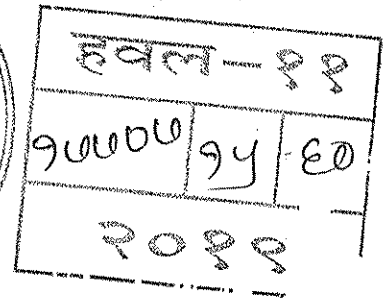 हवल - ११
१७७०७ १५ ६०
२०११